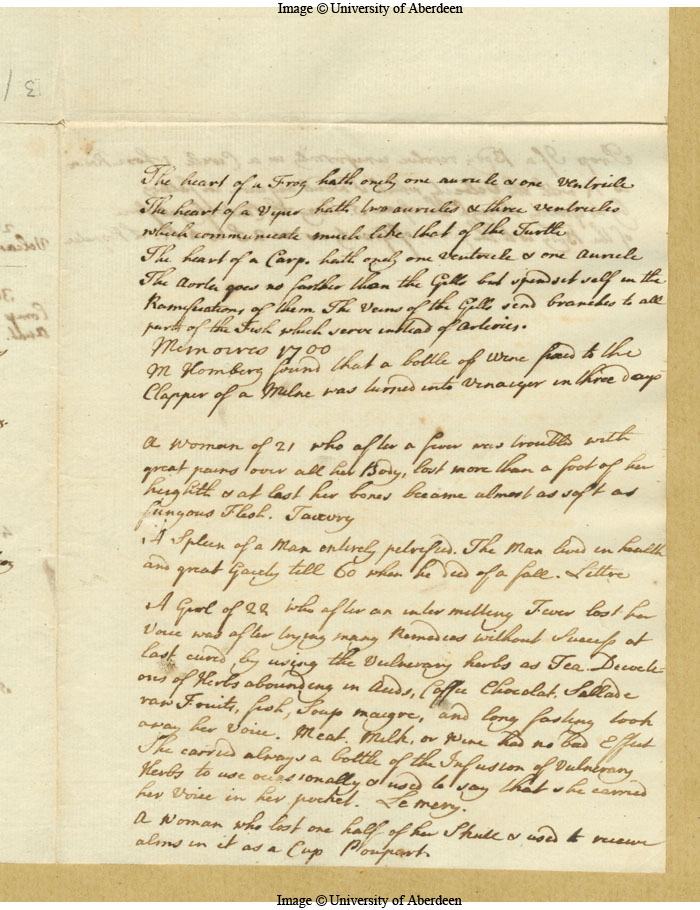 Image © University of Aberdeen
3 /
The heart of a Frog hath onely one auricle & one Ventricle
The heart of a Viper hath two auricles & three Ventricles
which communicate much like that of the Turtle
The heart of a Carp. hath onely one Ventricle & one Auricle
The Aorta goes no farther than the Gills but spends it self in the
Ramifications of them The Veins of the Gills send branches to all
parts of the Fish which serve instead of arteries.
Memoires 1700
M Homberg found that a bottle of Wine fixed to the
Clapper of a Milne was turned into Vinaiger in three days
A Woman of 21 who after a fever was troubled with
great pains over all her Body, lost more than a foot of her
heighth & at last her bones became almost as soft as
fungous Flesh.
A Spleen of a Man entirely petrified. The Man lived in health
and great Gaiety till 60 when he died of a fall. Lettre
A Girl of 22 who after an inter mitting Fever lost her
Voice was after trying many Remedies without Success at
last cured by using the Vulnerary herbs as Tea. Decocti-
ons of Herbs abounding in Acids, Coffee Chocolat, Sallade
raw Fruits, fish, Soup maigre, and long fasting took
away her Voice. Meat, Milk, or Wine had no bad Effect
She carried always a bottle of the Infusion of Vulnerary
Herbs to use occasionally & used to say that she carried
her Voice in her pocket. Lemery.
A Woman who lost one half of her Skull & used to receive
alms in it as a Cup Poupart.
Image © University of Aberdeen